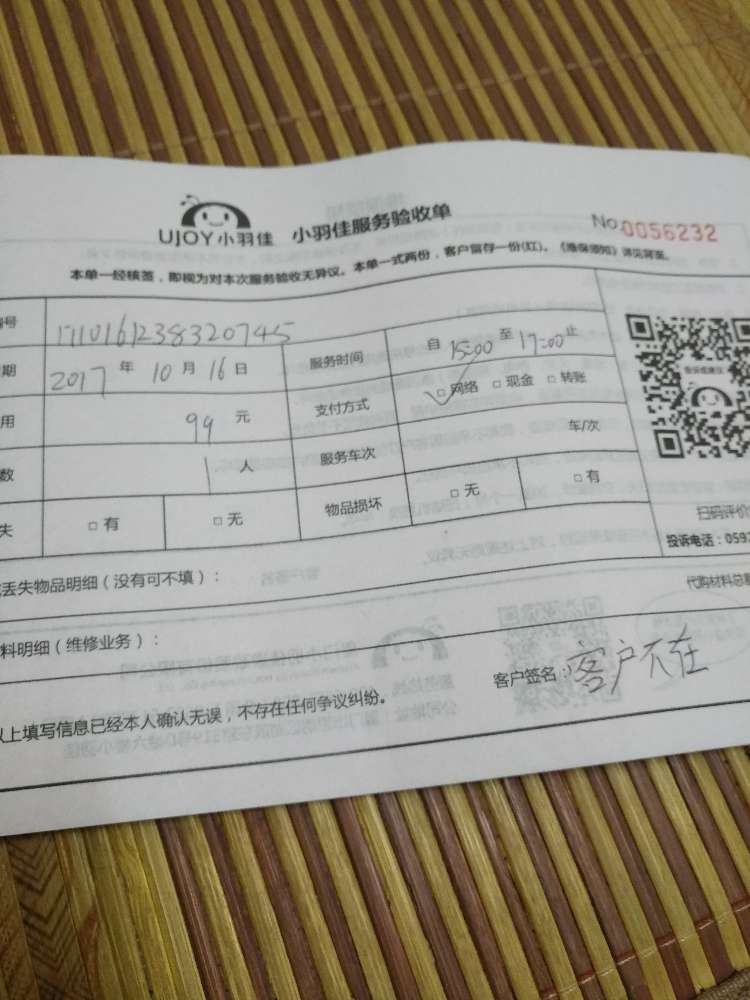 UJOY小羽佳 小羽佳服务验收单 No.0056232
本单一经核签，即视为对本次服务验收无异议。本单一式两份，客户留存一份(红)。《维保须知》详见背面。
号
期 2017 年 10 月 16 日 服务时间 自 15:00 至 17:00 止
用 99 元 支付方式 □ 网络 □ 现金 □ 转账
数 1 人 服务车次 车/次
失 □ 有 □ 无 物品损坏 □ 无 □ 有
扫码评价
投诉电话：0592
丢失物品明细（没有可不填）：
代购材料总
料明细（维修业务）：
客户签名：客户不在
以上填写信息已经本人确认无误，不存在任何争议纠纷。